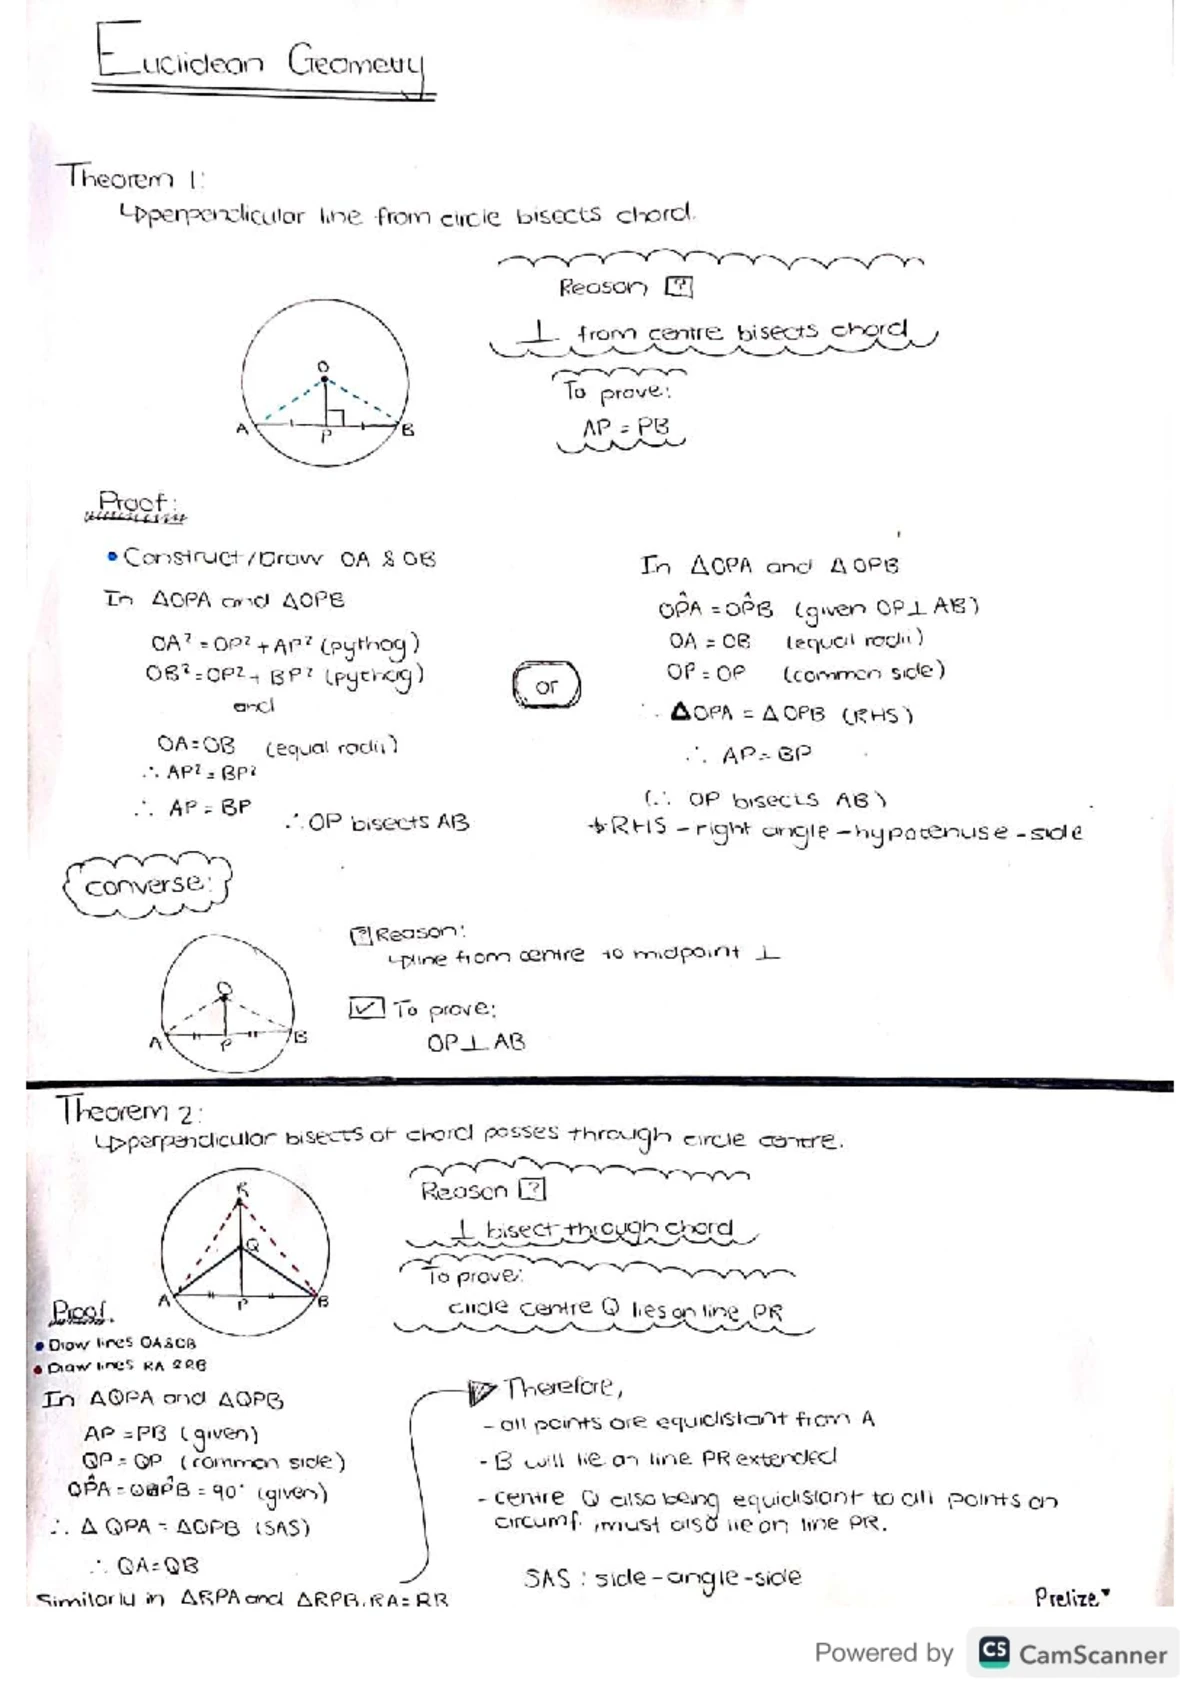 Euclidean Geometry
Theorem 1:
↳perpendicular line from circle bisects chord.
Reason ?
⊥ from centre bisects chord
To prove:
AP = PB
O
A
P
B
Proof:
• Construct/Draw OA & OB
In △OPA and △OPB
OA² = OP² + AP² (pythag)
OB² = OP² + BP² (pythag)
and
OA = OB (equal radii)
∴ AP² = BP²
∴ AP = BP
∴ OP bisects AB
or
In △OPA and △OPB
OP̂A = OP̂B (given OP⊥AB)
OA = OB (equal radii)
OP = OP (common side)
∴ △OPA = △OPB (RHS)
∴ AP = BP
(∴ OP bisects AB)
*RHS - right angle - hypotenuse - side
converse:
O
A
P
B
? Reason:
↳line from centre to midpoint ⊥
☑ To prove:
OP⊥AB
Theorem 2:
↳perpendicular bisects of chord passes through circle centre.
Reason ?
⊥ bisect through chord
To prove:
circle centre Q lies on line PR
R
Q
A
P
B
Proof.
• Draw lines OA&OB
• Draw lines RA & RB
In △QPA and △QPB
AP = PB (given)
QP = QP (common side)
QP̂A = QP̂B = 90° (given)
∴ △QPA = △QPB (SAS)
∴ QA = QB
Similarly in △RPA and △RPB, RA = RB
Therefore,
- all points are equidistant from A
- B will lie on line PR extended
- centre Q also being equidistant to all points on
circumf., must also lie on line PR.
SAS : side-angle-side
Prelize♥
Powered by CS CamScanner